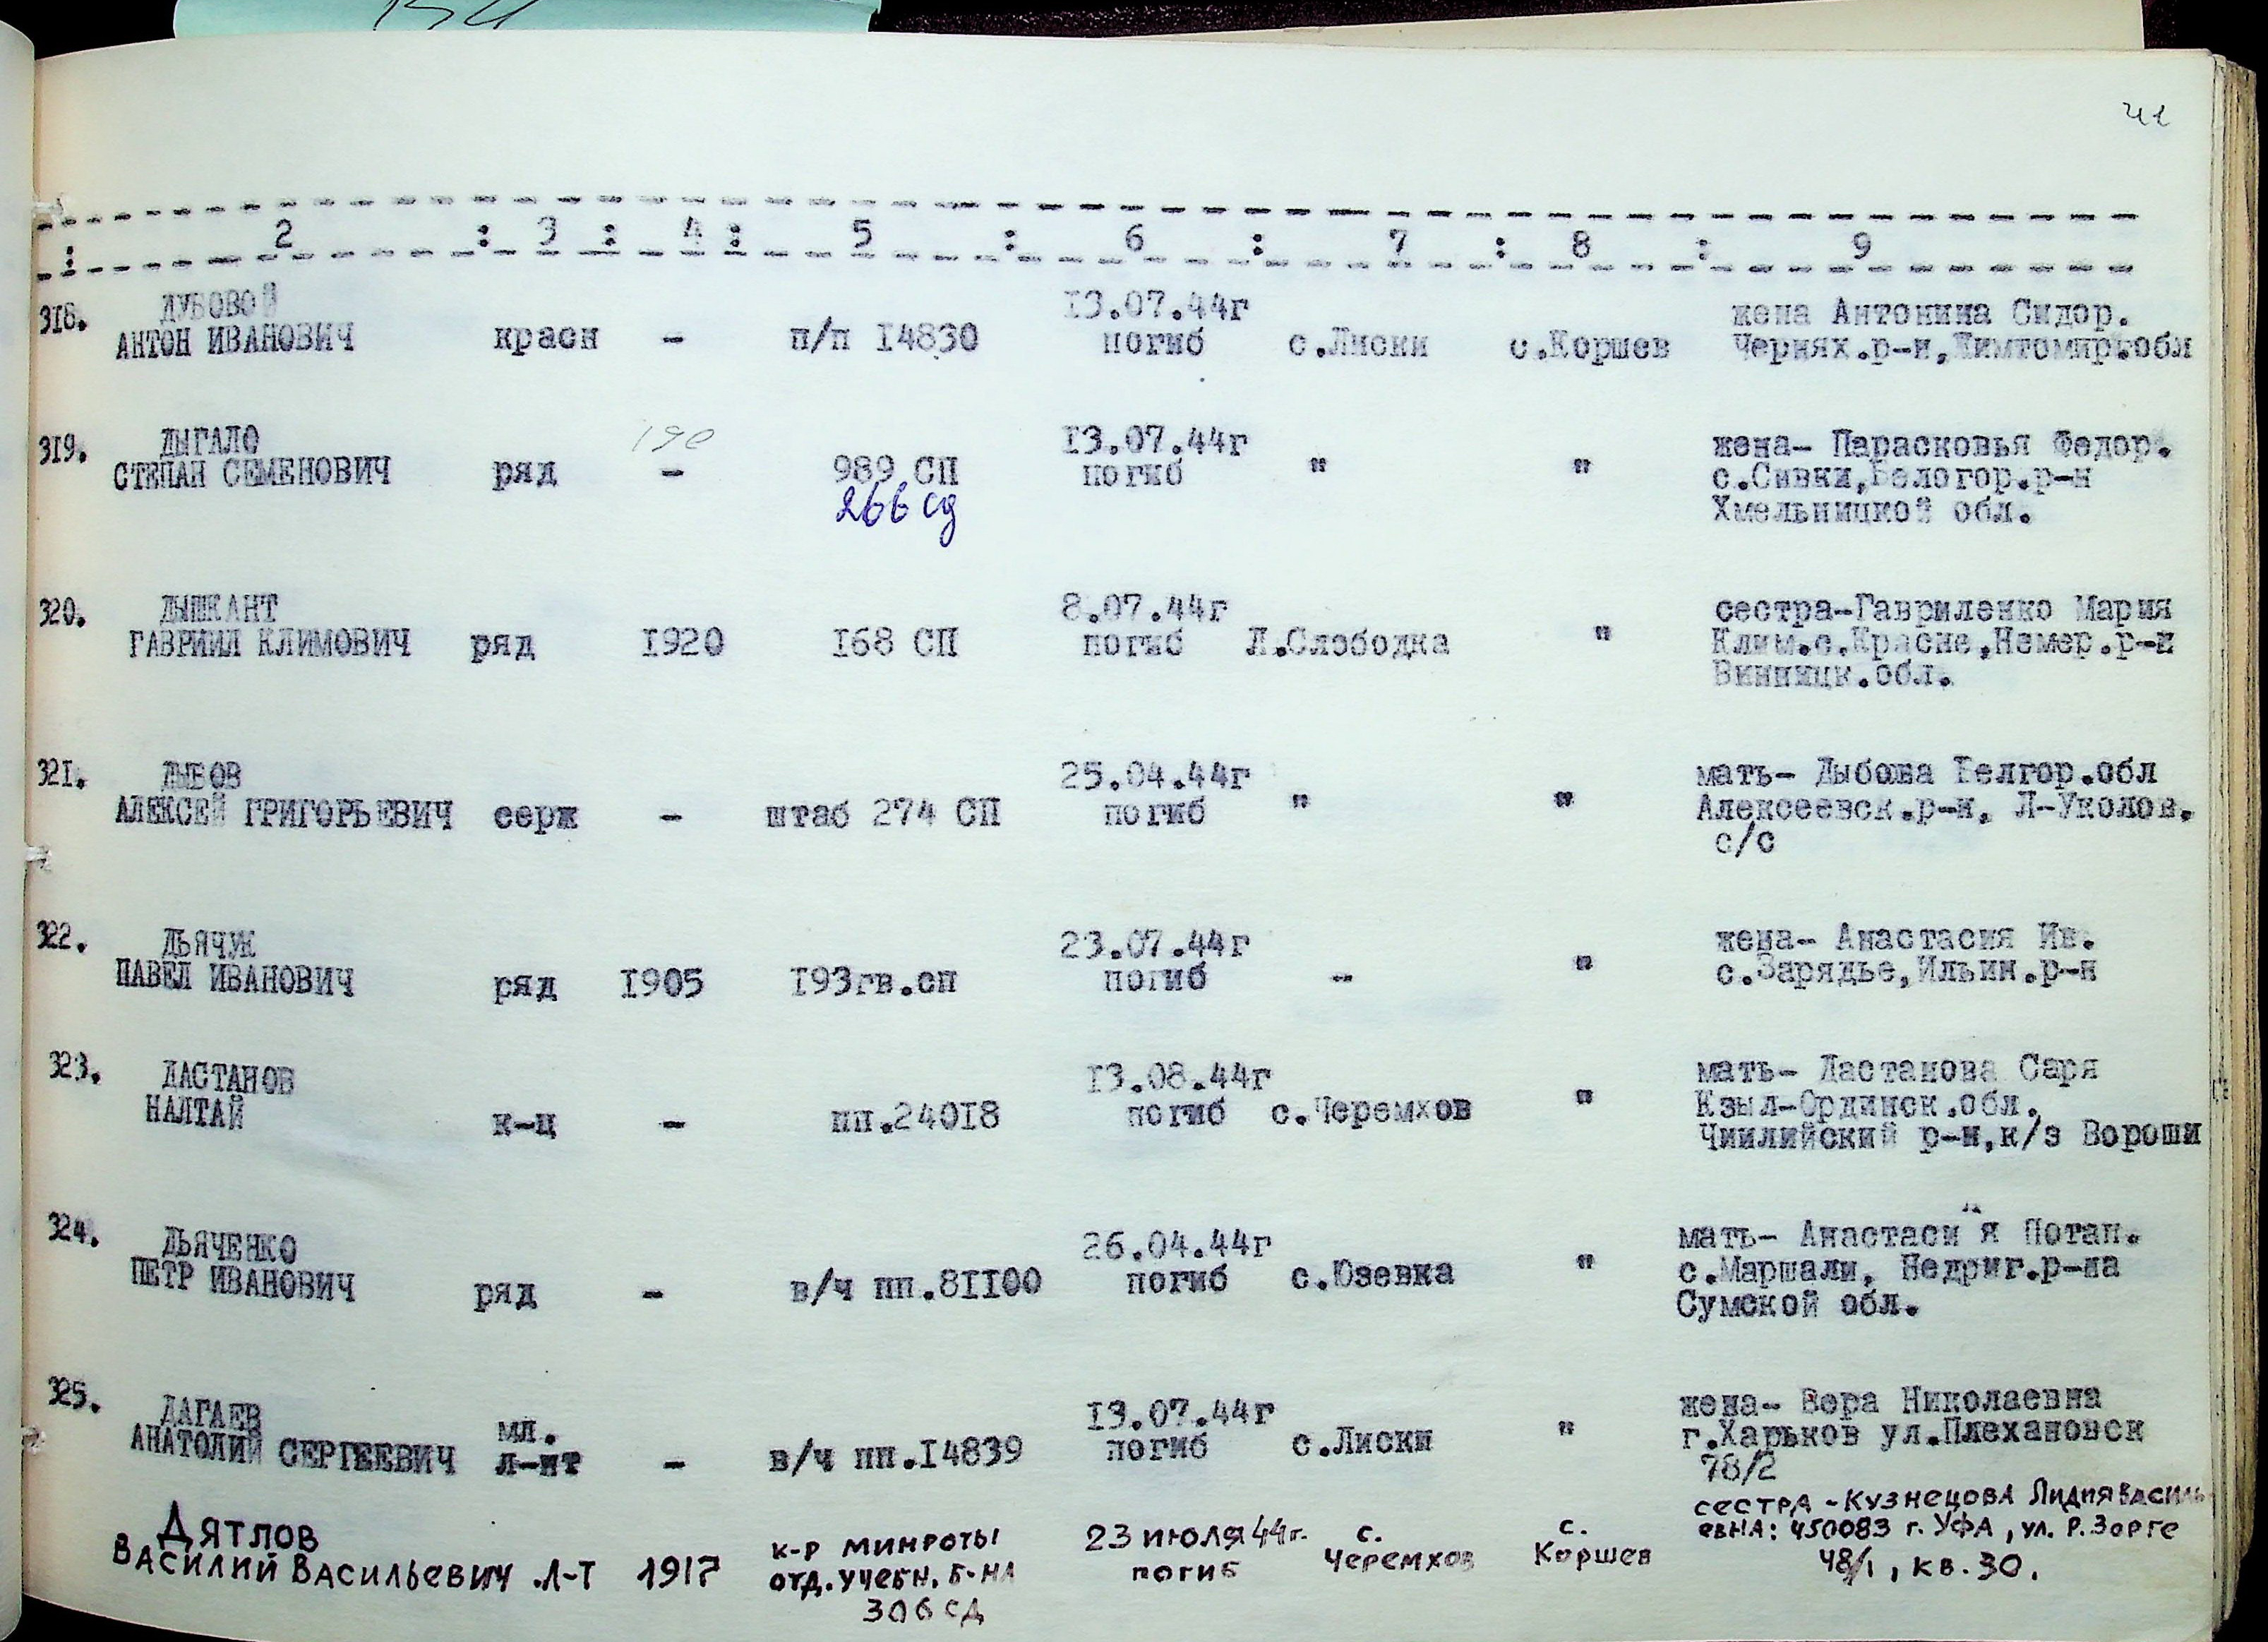 41
: 2 : 3 : 4 : 5 : 6 : 7 : 8 : 9
318. ДУБОВОЙ 13.07.44г жена Антонина Сидор.
АНТОН ИВАНОВИЧ красн - п/п 14830 погиб с.Лиски с.Коршев Чернях.р-н,Жимтомир.обл
319. ДЫГАЛО 190 13.07.44г жена- Парасковья Федор.
СТЕПАН СЕМЕНОВИЧ ряд - 989 СП погиб " " с.Сивки,Белогор.р-н
266 сд Хмельницкой обл.
320. ДЫШКАНТ 8.07.44г сестра-Гавриленко Мария
ГАВРИИЛ КЛИМОВИЧ ряд 1920 168 СП погиб Л.Слободка " Клим.с.Красне,Немер.р-н
Винницк.обл.
321. ДЫБОВ 25.04.44г мать- Дыбова Белгор.обл
АЛЕКСЕЙ ГРИГОРЬЕВИЧ серж - штаб 274 СП погиб " " Алексеевск.р-н, Л-Уколов.
с/с
322. ДЬЯЧУК 23.07.44г жена- Анастасия Ив.
ПАВЕЛ ИВАНОВИЧ ряд 1905 193гв.сп погиб - " с.Зарядье,Ильин.р-н
323. ДАСТАНОВ 13.08.44г мать- Дастанова Саря
НАЛТАЙ к-ц - пп.24018 погиб с.Черемхов " Кзыл-Ординск.обл.
Чиилийский р-н,к/з Вороши
324. ДЬЯЧЕНКО 26.04.44г мать- Анастаси"я Потап.
ПЕТР ИВАНОВИЧ ряд - в/ч пп.81100 погиб с.Юзевка " с.Маршали, Недриг.р-на
Сумской обл.
325. ДАГАЕВ мл. 13.07.44г жена- Вера Николаевна
АНАТОЛИЙ СЕРГЕЕВИЧ л-нт - в/ч пп.14839 погиб с.Лиски " г.Харьков ул.Плехановск
78/2
Дятлов к-р минроты 23 июля 44г. с. с. сестра - Кузнецова Лидия Василь
Василий Васильевич .л-т 1917 отд. учебн. б-на погиб Черемхов Коршев евна: 450083 г. Уфа, ул. Р. Зорге
306 сд 48/1, кв. 30.